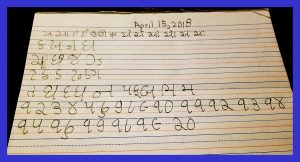 April 15, 2018
ક ખ ગ ઘ
ચ છ જ ઝ
ટ ઠ ડ ઢ ણ
ત થ દ ધ ન પ ફ બ ભ મ
૧ ૨ ૩ ૪ ૫ ૬ ૭ ૮ ૯ ૧૦ ૧૧ ૧૨ ૧૩ ૧૪
૧૫ ૧૬ ૧૭ ૧૮ ૧૯ ૨૦